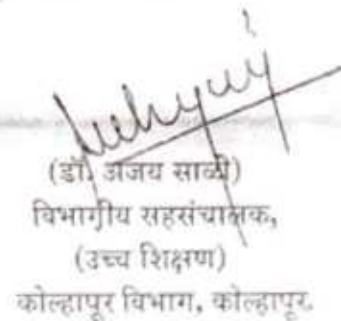 (डॉ. अजय साळी)
विभागीय सहसंचालक,
(उच्च शिक्षण)
कोल्हापूर विभाग, कोल्हापूर.